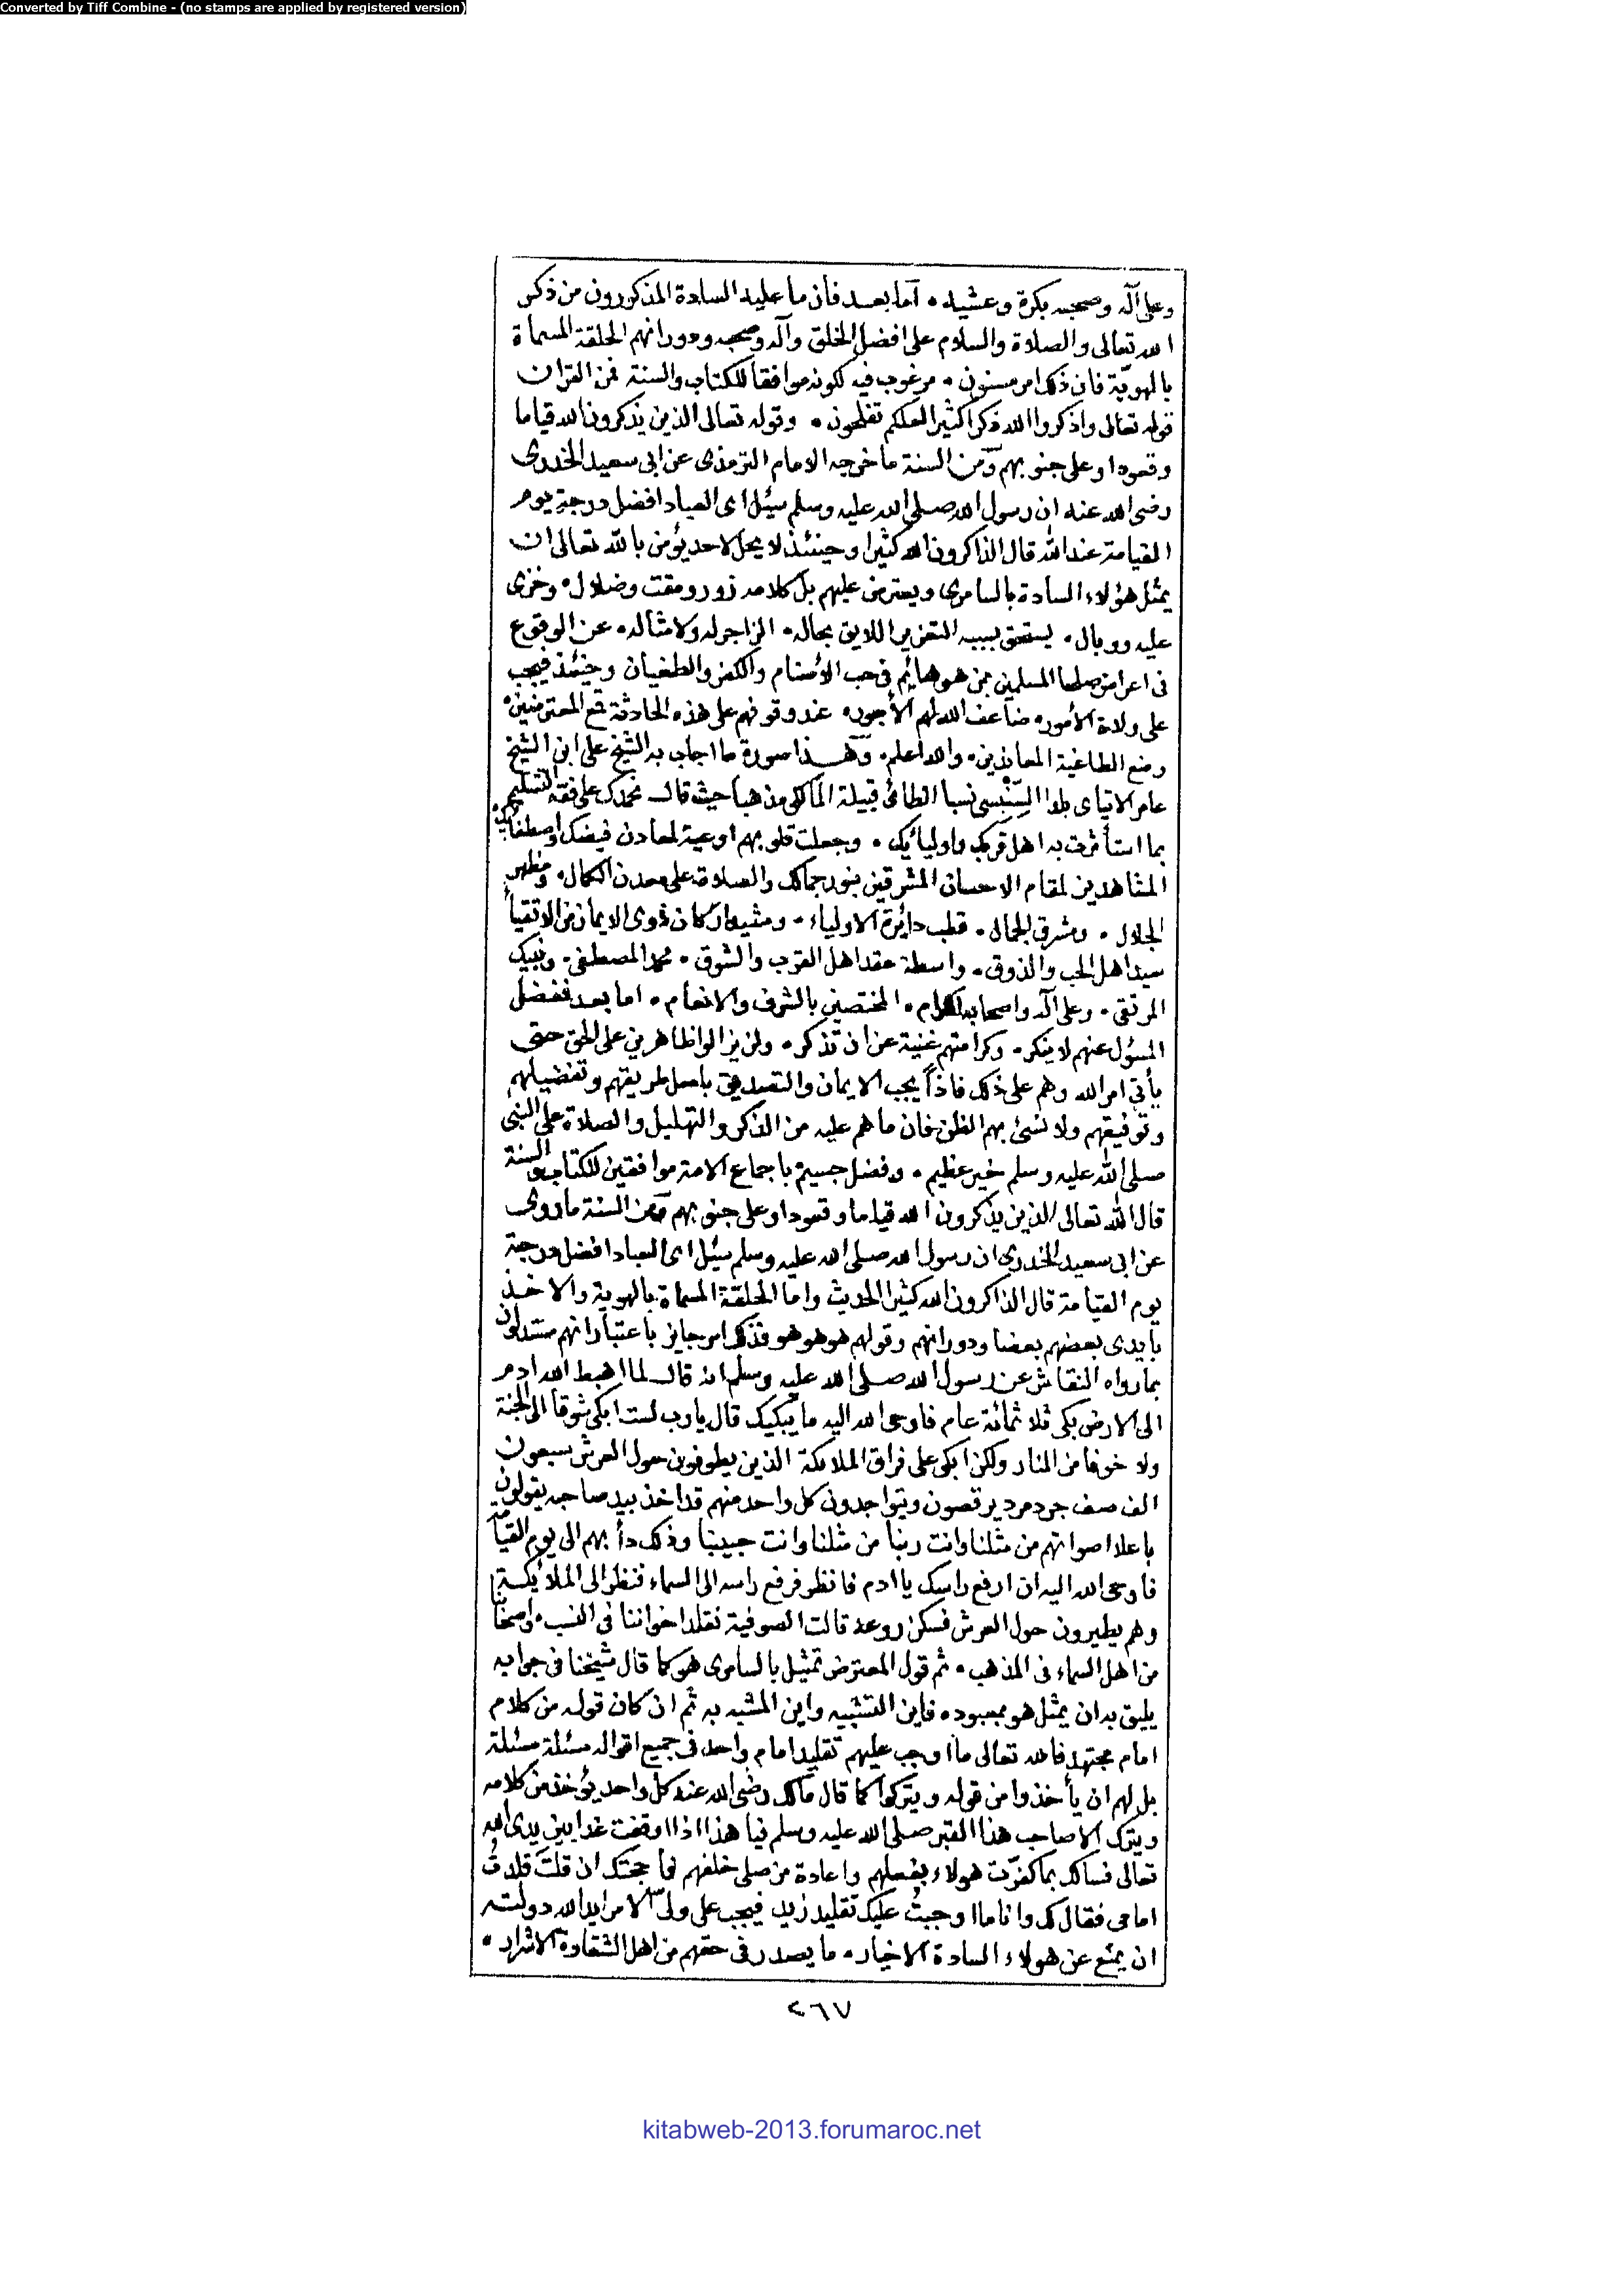 Converted by Tiff Combine - (no stamps are applied by registered version)
وعلى آله وصحبه بكرة وعشيه • آما بعد فأن ما عليه السادة المذكورون من ذكر
الله تعالى والصلاة والسلام على افضل الخلق وآله وصحبه ودورانهم الحلقة المسماة
بالهويّة فان ذلك امر مسنون • مرغوب فيه لكونه موافقاً للكتاب والسنة فمن القران
قوله تعالى واذكروا الله ذكرا كثيرا لعلكم تفلحون • وقوله تعالى الذين يذكرون الله قياما
وقعودا وعلى جنوبهم ومن السنة ما خرجه الامام الترمذى عن ابى سعيد الخدرى
رضى الله عنه ان رسول الله صلى الله عليه وسلم سئل اى العباد افضل درجة يوم
القيامة عند الله قال الذاكرون الله كثيرا وحينئذ لا يحل لاحد يؤمن بالله تعالى ان
يمثل هؤلاء السادة بالسامرى ويعترض عليهم بل كلامه زور ومقت وضلال • وخزى
عليه ووبال • يستحق بسببه التعزير اللايق بحاله • الزاجر له ولامثاله • عن الوقوع
فى اعراض صلحا المسلمين ممن هو هائم فى حب الأصنام والكفر والطغيان وحينئذ فيجب
على ولاة الأمور • ضاعف الله لهم الأجور • عند وقوفهم على هذه الحادثة قمع المعترضين •
وضع الطاغية المعاندين • والله اعلم • وهذا صورة ما اجاب به الشيخ على ابن الشيخ
عامر الاتياى بلدا السِّنْبِسى نسبا الطائى قبيلة المالكى مذهبا حيث قال نحمدك على فقه التسليم
بما استأثرت به اهل قربك واوليائك • وجعلت قلوبهم اوعية لمعادن فيضك واصطفائك •
المشاهدين لمقام الاحسان المشرقين بنور جمالك والصلاة على معدن الكمال • ومظهر
الجلال • ومشرق الجمال • قطب دائرة الاولياء • ومشيد اركان ذوى الايمان من الاتقياء
سيد اهل الحب والذوق • واسطة عقد اهل القرب والشوق • محمد المصطفى • ونبيك
المرتقى • وعلى آله واصحابه الكرام • المختصين بالشرف والانعام • اما بعد ففضل
المسؤل عنهم لا ينكر • وكرامتهم غنية عن ان تذكر • ولن يزالوا ظاهرين على الحق حتى
يأتى امر الله وهم على ذلك فاذاً يجب الايمان والتصديق باصل طريقهم وتفضيلهم
وتوفيقهم ولا نسئ بهم الظن فان ما هم عليه من الذكر والتهليل والصلاة على النبى
صلى الله عليه وسلم خير عظيم • وفضل جسيم باجماع الامة موافقين للكتاب والسنة
قال الله تعالى الذين يذكرون الله قياما وقعودا وعلى جنوبهم ومن السنة ما روى
عن ابى سعيد الخدرى ان رسول الله صلى الله عليه وسلم سئل اى العباد افضل درجة
يوم القيامة قال الذاكرون الله كثيرا الحديث واما الحلقة المسماة بالهوية والاخذ
بأيدى بعضهم بعضا ودورانهم وقولهم هو هو هو فذلك امر جايز باعتبار انهم مستدلون
بما رواه النقاش عن رسول الله صلى الله عليه وسلم انه قال لما اهبط الله ادم
الى الارض بكى ثلاثمائة عام فاوحى الله اليه ما يبكيك قال يا رب لست ابكى شوقا الى الجنة
ولا خوفا من النار ولكن ابكى على فراق الملائكة الذين يطوفون حول العرش سبعون
الف صف جرد مرد يرقصون ويتواجدون كل واحد منهم قد اخذ بيد صاحبه يقولون
باعلا اصواتهم من مثلنا وانت ربنا من مثلنا وانت حبيبنا وذلك دأبهم الى يوم القيامة
فاوحى الله اليه ان ارفع راسك يا ادم فانظر فرفع راسه الى السماء فنظر الى الملائكة
وهم يطيرون حول العرش فسكن روعه قالت الصوفية نقلد اخواننا فى النسب • واصحابنا
من اهل السماء فى المذهب • ثم قول المعترض تمثيل بالسامرى هو كما قال شيخنا فى جوابه
يليق به ان يمثل هو بمعبوده فاين التشبيه واين المشبه به ثم ان كان قوله من كلام
امام مجتهد فالله تعالى ما اوجب عليهم تقليد امام واحد فى جميع اقواله مسئلة مسئلة
بل لهم ان يأخذوا من قوله ويتركوا كما قال مالك رضى الله عنه كل واحد يؤخذ من كلامه
ويترك الا صاحب هذا القبر صلى الله عليه وسلم فيا هذا اذا اوقفت غدا بين يدى الله
تعالى فسالك بما كفرت هولاء بفعلهم واعادة من صلى خلفهم فما حجتك ان قلت قلدت
امامى فقال لك وانا ما اوجبت عليك تقليد زيد فيجب على ولى الامر ايد الله دولته
ان يمنع عن هولاء السادة الاخيار • ما يصدر فى حقهم من اهل الشقاوة الاشرار •
٢٦٧
kitabweb-2013.forumaroc.net